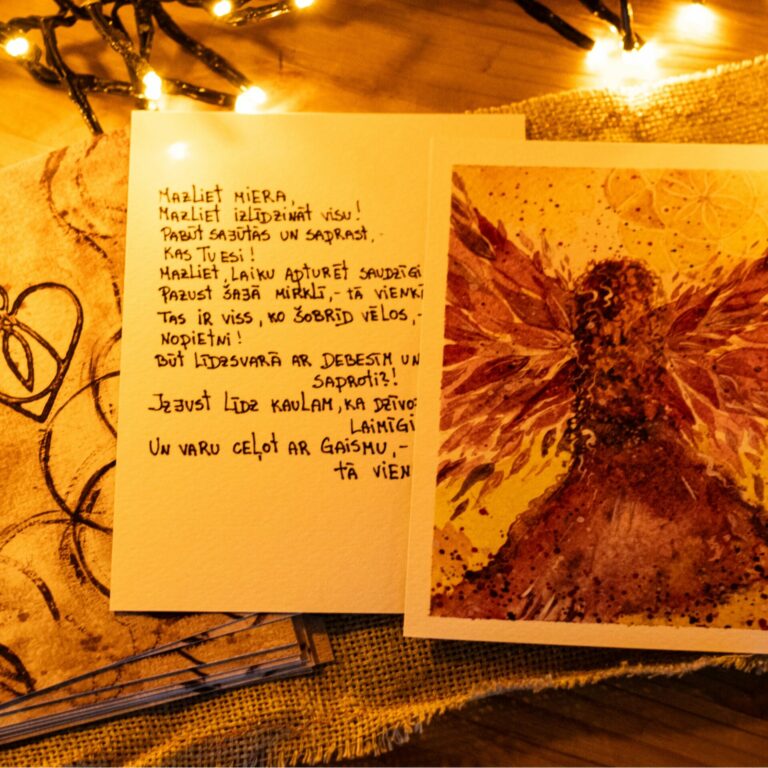 MAZLIET MIERA,
MAZLIET IZLĪDZINĀT VISU!
PABŪT SAJŪTĀS UN SAPRAST,-
KAS TU ESI!
MAZLIET, LAIKU APTURĒT SAUDZĪGI
PAZUST ŠAJĀ MIRKLĪ,- TĀ VIENK
TAS IR VISS, KO ŠOBRĪD VĒLOS,-
NOPIETNI!
BŪT LĪDZSVARĀ AR DEBESĪM UN
SAPROTI?!
IZJUST LĪDZ KAULAM, KA DZĪVO
LAIMĪGI
UN VARU CEĻOT AR GAISMU,-
TĀ VIEN